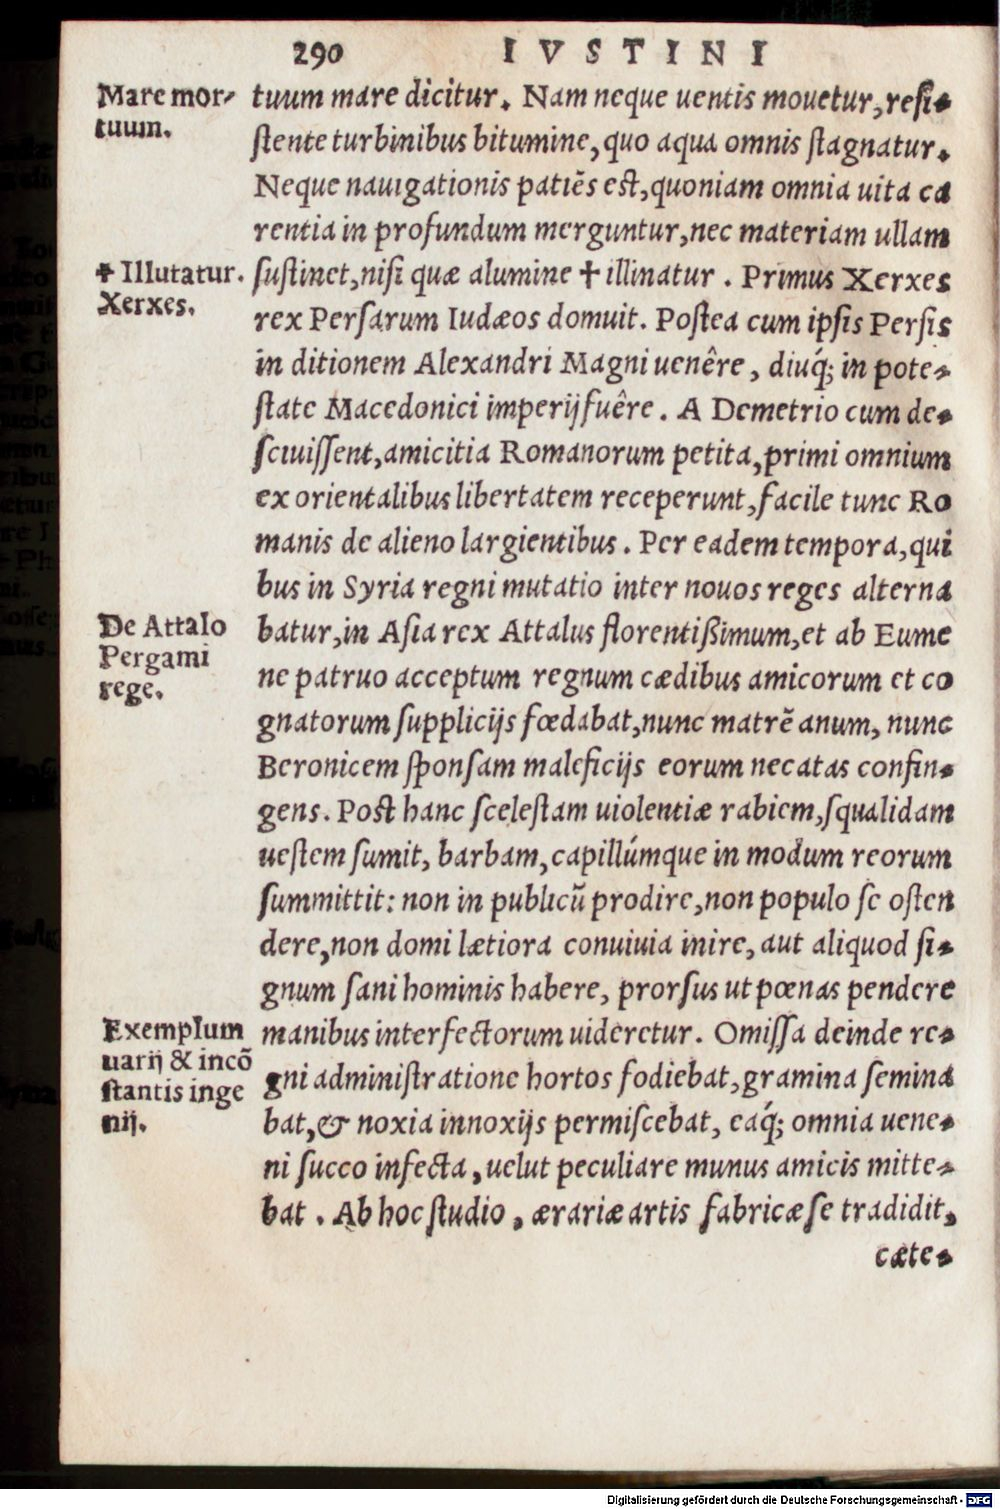 290 IVSTINI
Mare mor-
tuum.
tuum mare dicitur. Nam neque uentis mouetur, resi-
stente turbinibus bitumine, quo aqua omnis stagnatur.
Neque nauigationis patiẽs est, quoniam omnia uita ca
rentia in profundum merguntur, nec materiam ullam
✝ Illutatur.
Xerxes.
sustinet, nisi quæ alumine ✝ illinatur. Primus Xerxes
rex Persarum Iudæos domuit. Postea cum ipsis Persis
in ditionem Alexandri Magni uenêre, diuq́; in pote-
state Macedonici imperij fuêre. A Demetrio cum de-
sciuissent, amicitia Romanorum petita, primi omnium
ex orientalibus libertatem receperunt, facile tunc Ro
manis de alieno largientibus. Per eadem tempora, qui
bus in Syria regni mutatio inter nouos reges alterna
De Attalo
Pergami
rege.
batur, in Asia rex Attalus florentißimum, et ab Eume
ne patruo acceptum regnum cædibus amicorum et co
gnatorum supplicijs fœdabat, nunc matrẽ anum, nunc
Beronicem sponsam maleficijs eorum necatas confin-
gens. Post hanc scelestam uiolentiæ rabiem, squalidam
uestem sumit, barbam, capillúmque in modum reorum
summittit: non in publicũ prodire, non populo se osten
dere, non domi lætiora conuiuia inire, aut aliquod si-
gnum sani hominis habere, prorsus ut pœnas pendere
Exemplum
uarij & incõ
stantis inge
nij.
manibus interfectorum uideretur. Omissa deinde re-
gni administratione hortos fodiebat, gramina semina
bat, & noxia innoxijs permiscebat, eaq́; omnia uene-
ni succo infecta, uelut peculiare munus amicis mitte-
bat. Ab hoc studio, ærariæ artis fabricæ se tradidit,
cæte-
Digitalisierung gefördert durch die Deutsche Forschungsgemeinschaft - DFG